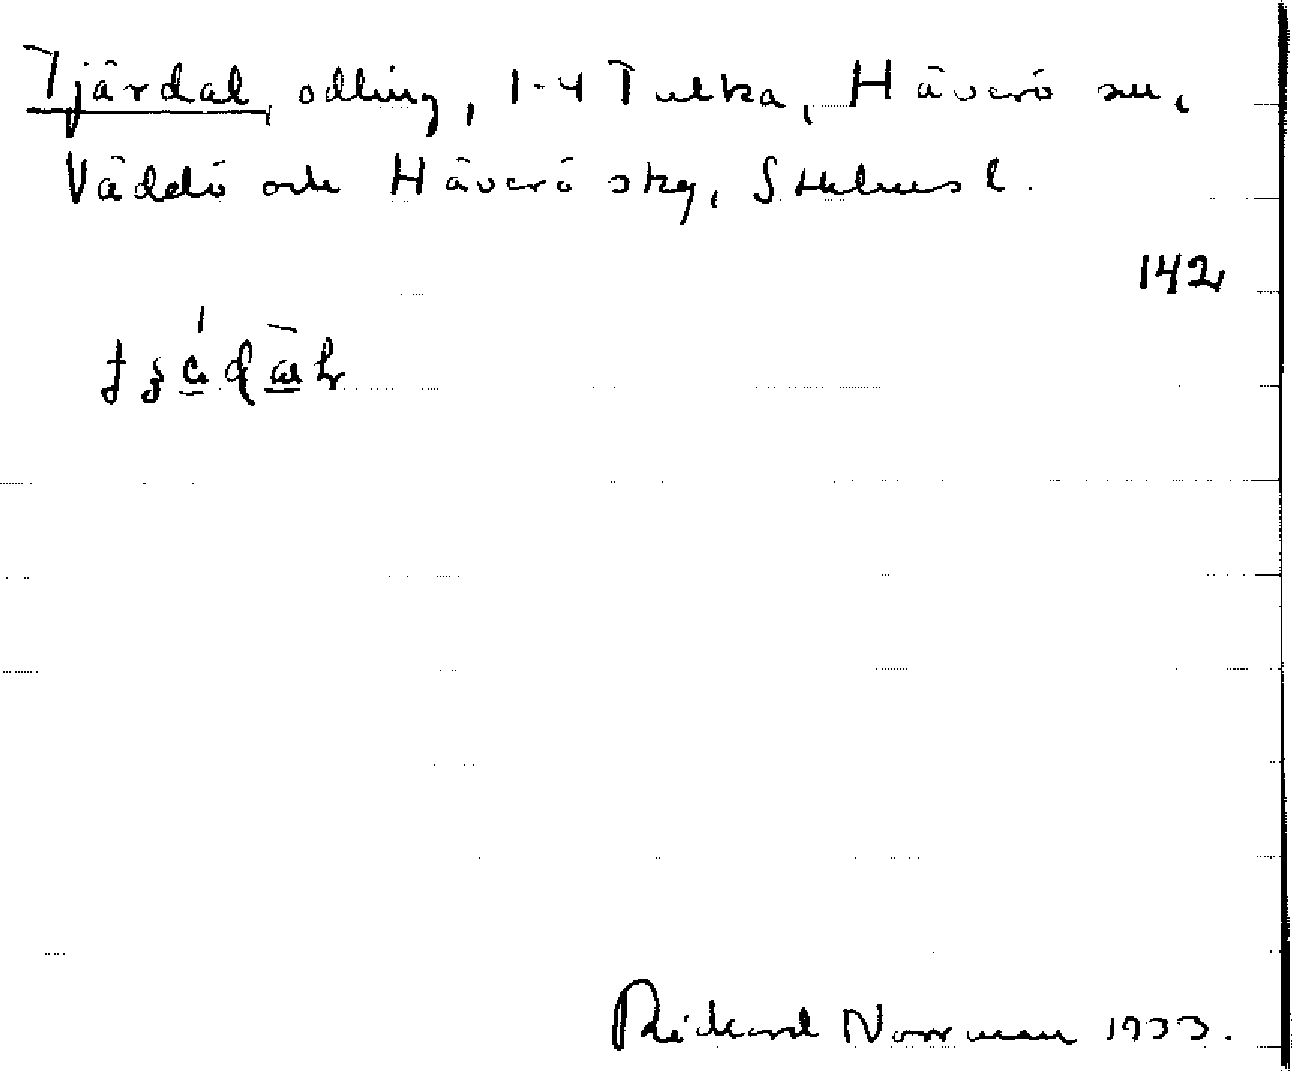 Tjärdal, odling, 1-4 Tulka, Häverö sn,
Väddö och Häverö skg, Sthlms l.
142
Rickard Norrman 1933.